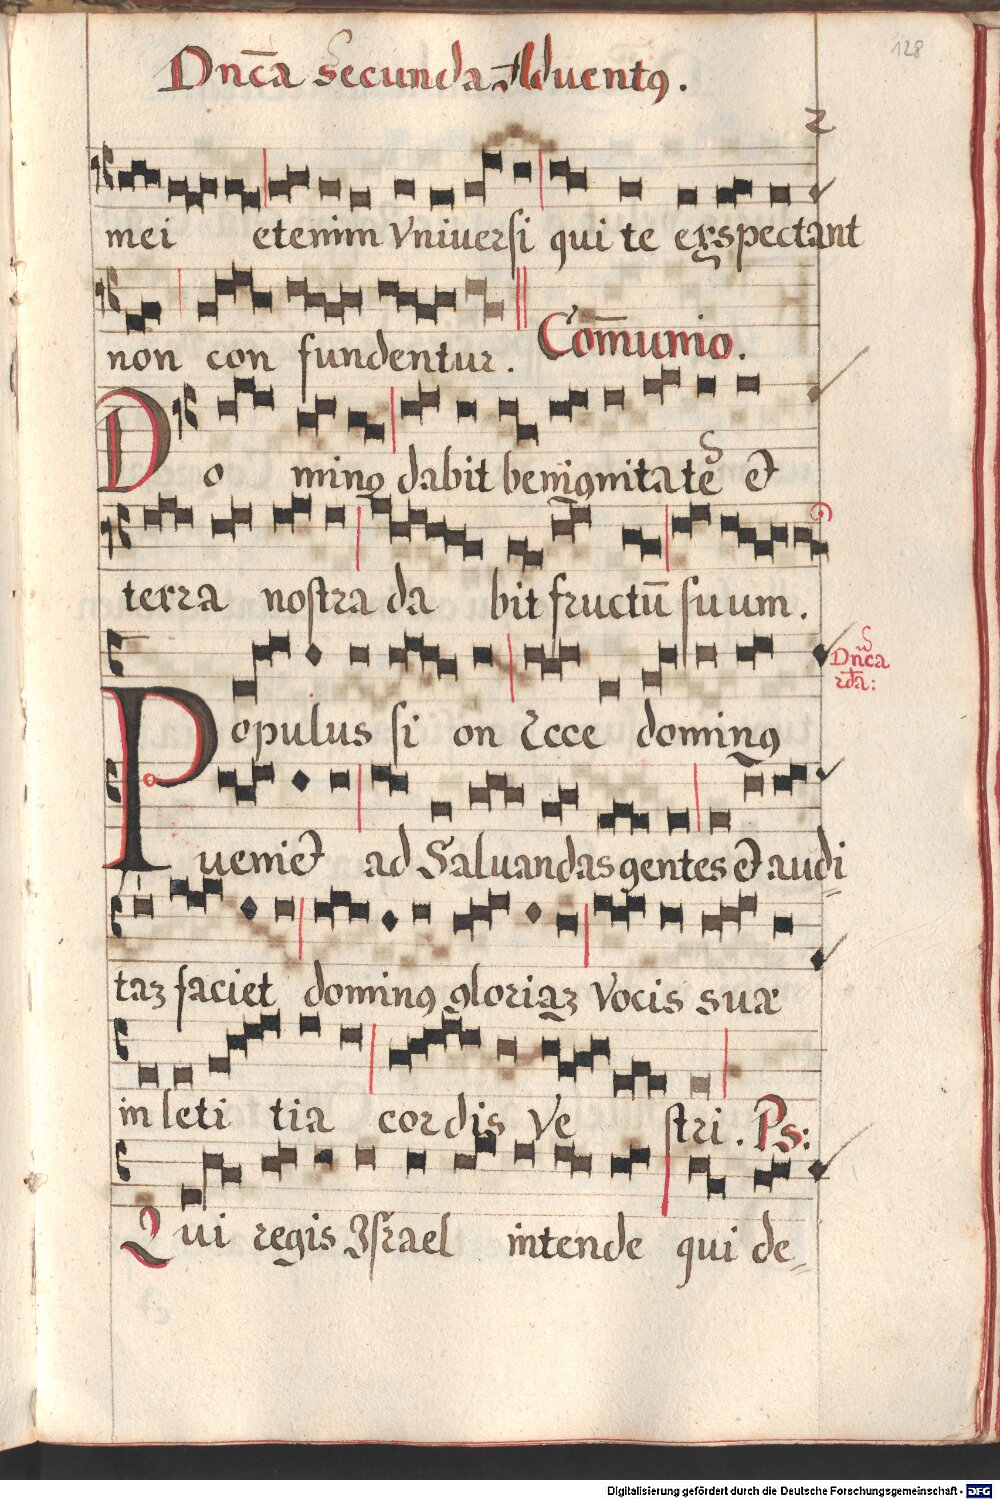 128
Dnc̄a secunda Aduentꝰ.
2
mei etenim Vniuersi qui te exspectant
non con fundentur. Com̄unio.
Do minꝰ dabit benignitatē et
terra nostra da bit fructū suum.
Dnc̄a
Populus si on Ecce dominꝰ
ueniet ad Saluandas gentes et audi
taz faciet dominꝰ gloriaz Vocis suæ
in leti tia cordis Ve stri. Ps:
Qui regis Israel intende qui de-
Digitalisierung gefördert durch die Deutsche Forschungsgemeinschaft - DFG